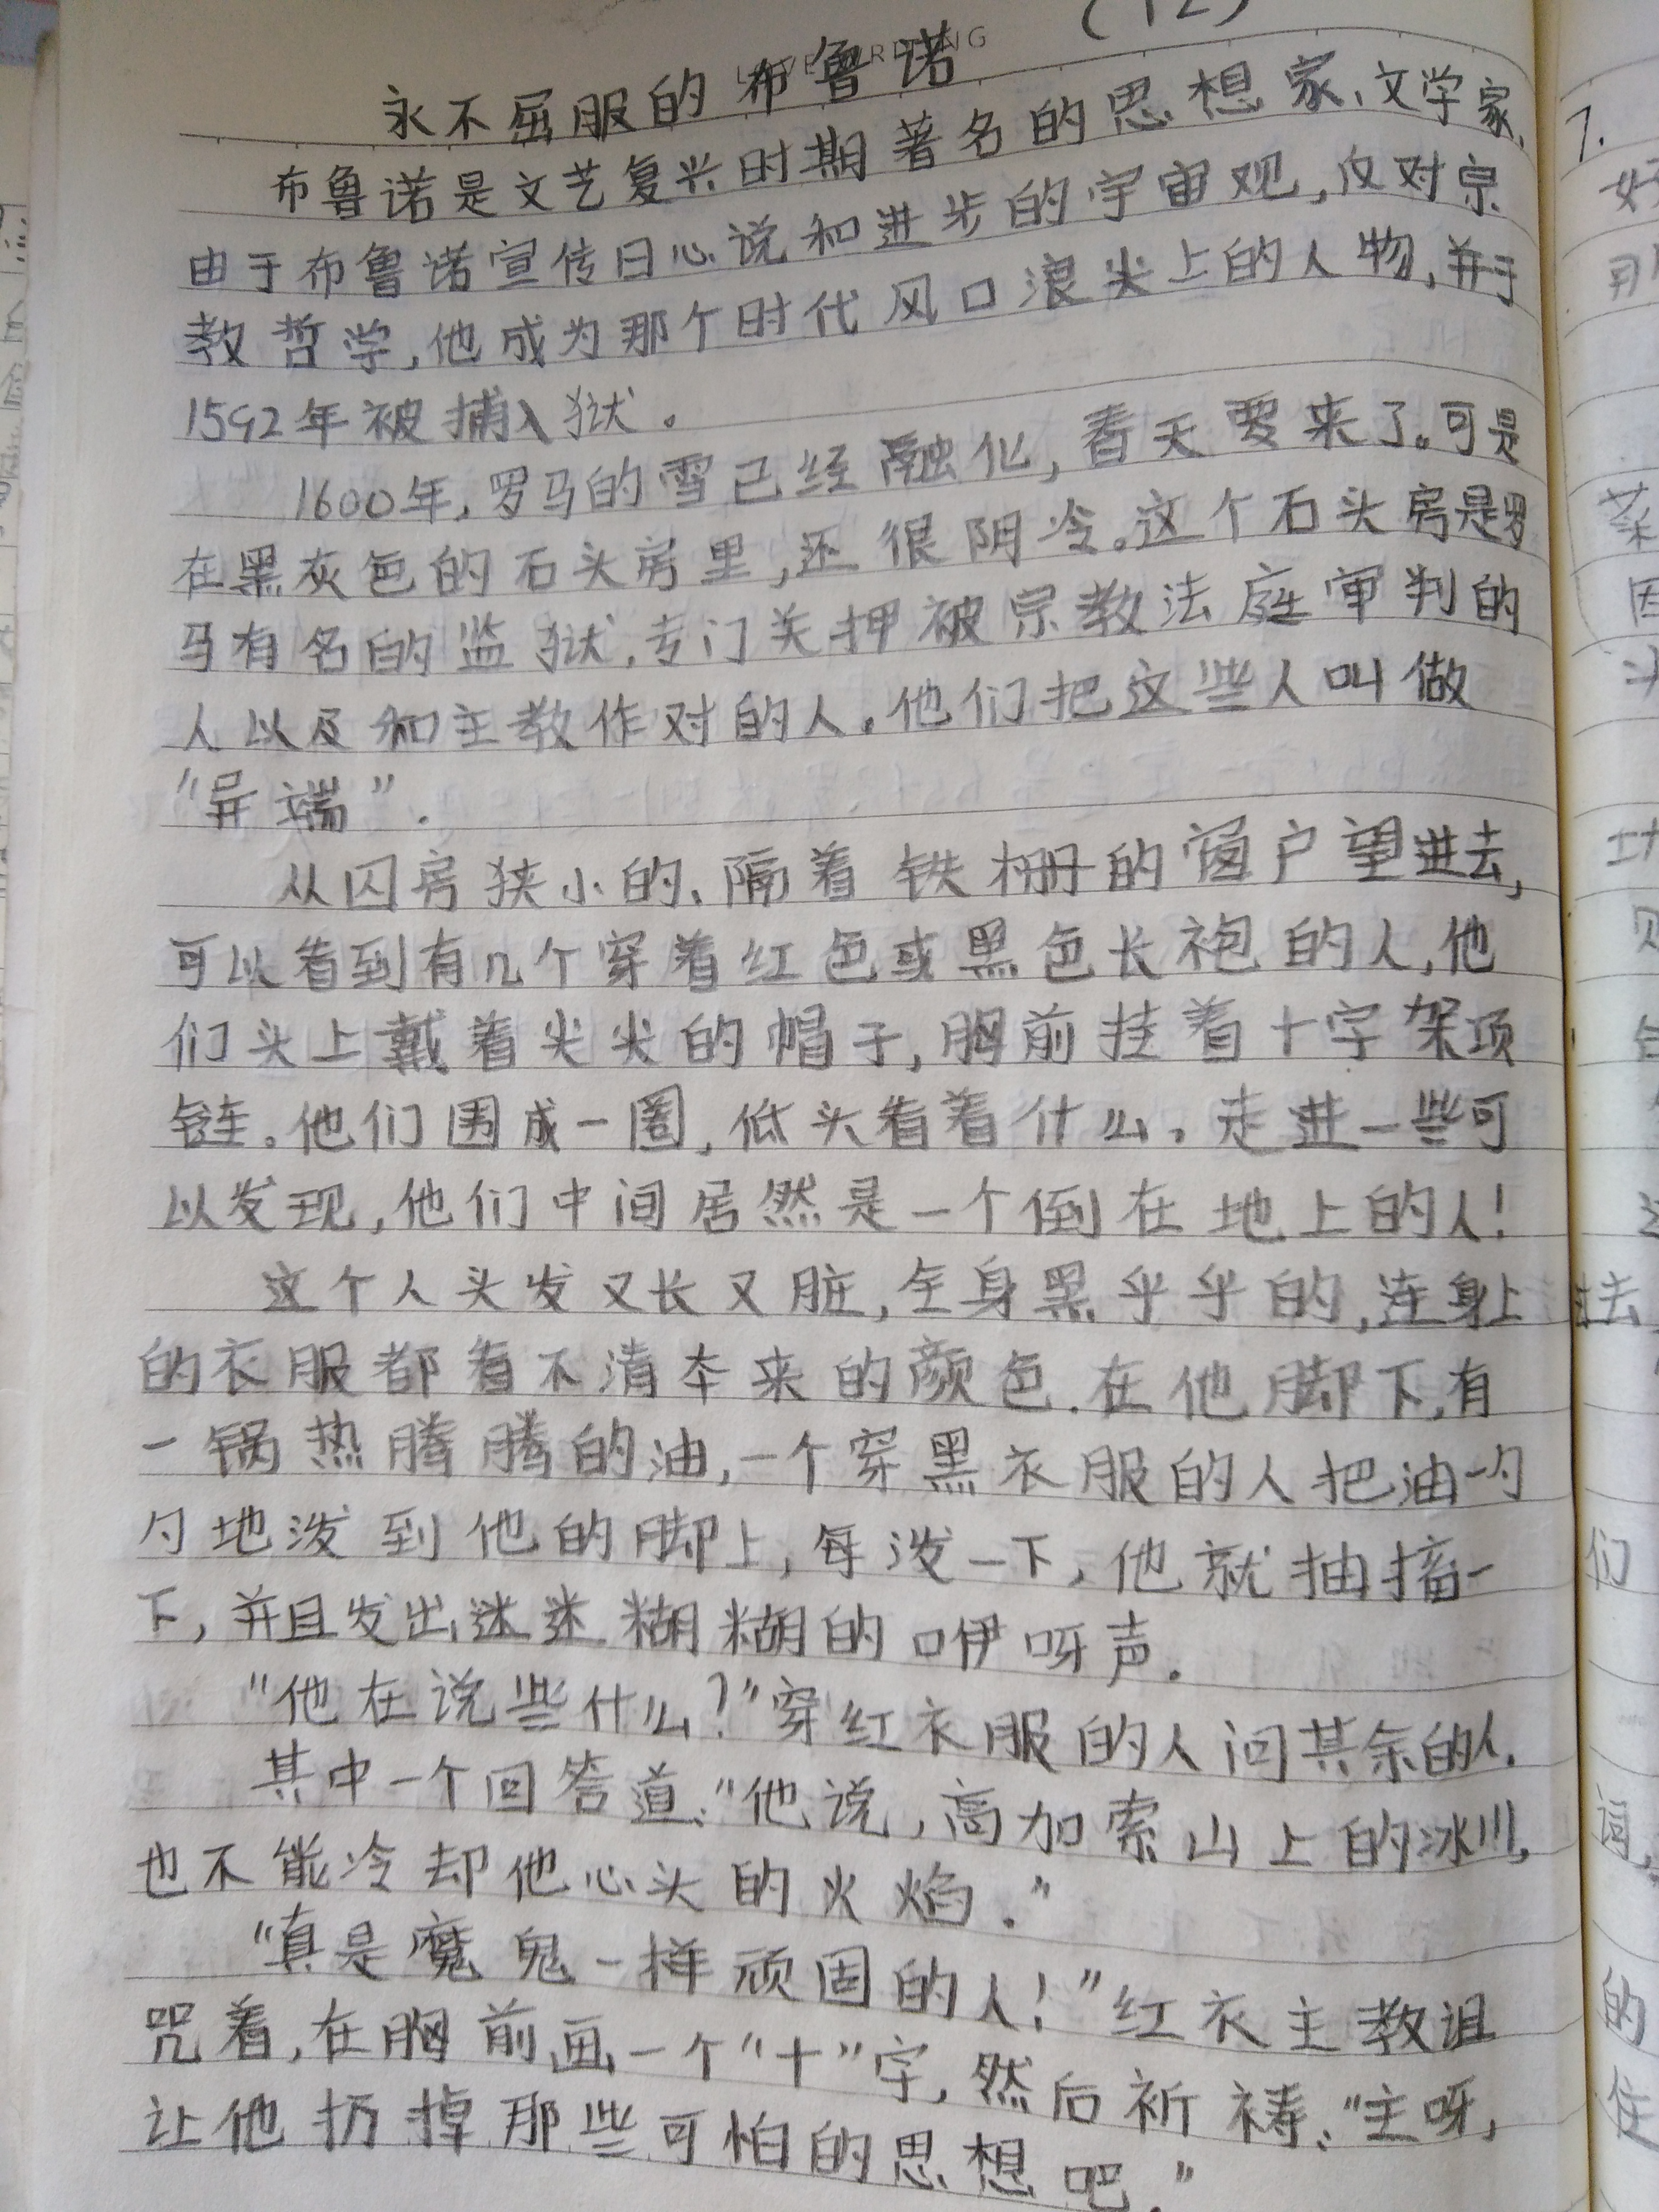 (12)
永不屈服的布鲁诺
布鲁诺是文艺复兴时期著名的思想家、文学家,
由于布鲁诺宣传日心说和进步的宇宙观,反对宗
教哲学,他成为那个时代风口浪尖上的人物,并于
1592年被捕入狱。
1600年,罗马的雪已经融化,春天要来了。可是
在黑灰色的石头房里,还很阴冷。这个石头房是罗
马有名的监狱,专门关押被宗教法庭审判的
人以及和主教作对的人。他们把这些人叫做
"异端".
从囚房狭小的、隔着铁栅的窗户望进去,
可以看到有几个穿着红色或黑色长袍的人,他
们头上戴着尖尖的帽子,胸前挂着十字架项
链。他们围成一圈,低头看着什么。走进一些可
以发现,他们中间居然是一个倒在地上的人!
这个人头发又长又脏,全身黑乎乎的,连身上
的衣服都看不清本来的颜色.在他脚下,有
一锅热腾腾的油,一个穿黑衣服的人把油一勺
勺地泼到他的脚上,每泼一下,他就抽搐一
下,并且发出迷迷糊糊的咿呀声.
"他在说些什么?"穿红衣服的人问其余的人.
其中一个回答道:"他说,高加索山上的冰川,
也不能冷却他心头的火焰."
"真是魔鬼一样顽固的人!"红衣主教诅
咒着,在胸前画一个"十"字,然后祈祷:"主呀,
让他扔掉那些可怕的思想吧."